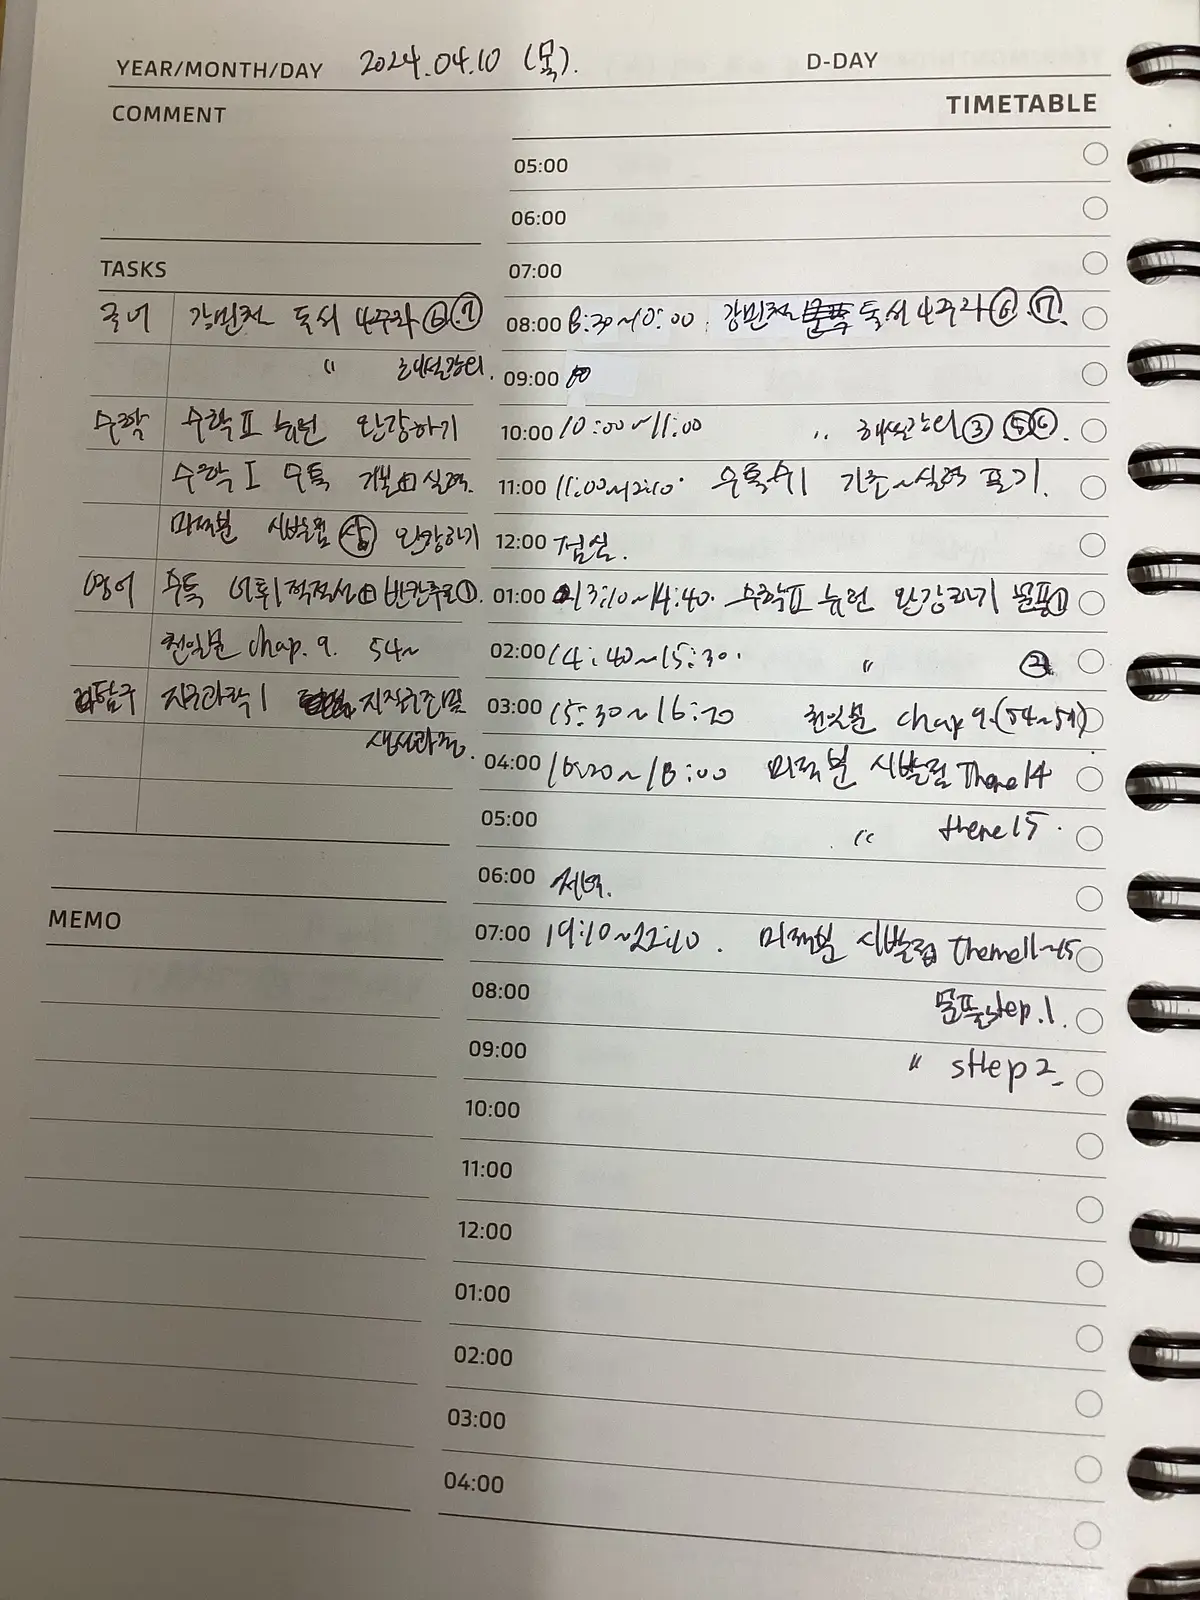 YEAR/MONTH/DAY 2024.04.10 (목).
D-DAY
COMMENT
TASKS
국어 강민철 독서 4주차 ⑥.⑦
" 해설강의.
수학 수학Ⅱ 뉴런 완강하기
수학Ⅰ 수특 기본+실력.
미적분 시발점 (상) 완강하기
영어 수특 어휘적절성+빈칸추론①.
천일문 chap. 9. 54~
탐구 지구과학1 지질구조 및
생성과정.
MEMO
TIMETABLE
05:00
06:00
07:00
08:00 8:30~10:00. 강민철 독서 4주차 ⑥.⑦.
09:00
10:00 10:00~11:00 " 해설강의 ③ ⑤⑥.
11:00 11:00~12:10. 수특수1 기초~실력 풀기.
12:00 점심.
01:00 13:10~14:40. 수학Ⅱ 뉴런 완강하기 문풀①
02:00 14:40~15:30. " ②
03:00 15:30~16:20 천일문 chap 9.(54~59)
04:00 16:20~18:00 미적분 시발점 Theme14
05:00 " theme15.
06:00 저녁.
07:00 19:10~22:10. 미적분 시발점 Theme11~15
08:00 문풀 step.1.
09:00 " sttep 2.
10:00
11:00
12:00
01:00
02:00
03:00
04:00